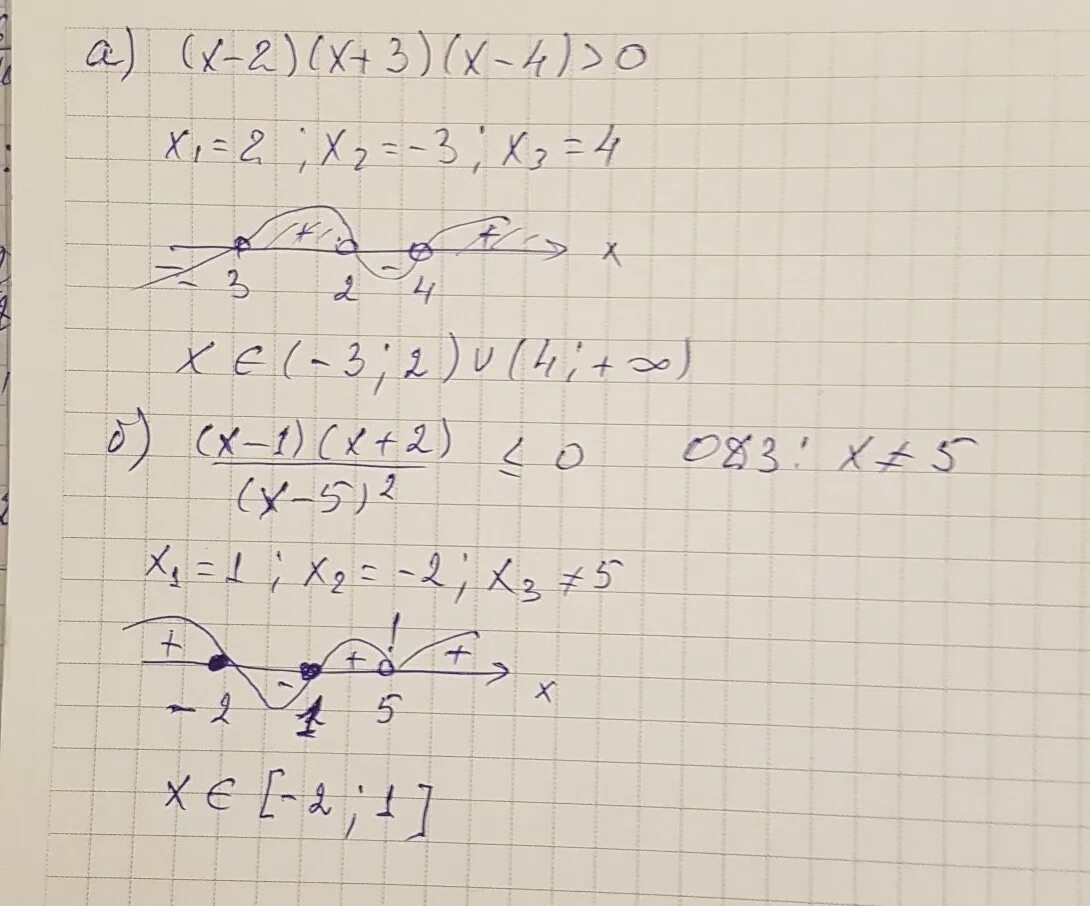 а) (x-2)(x+3)(x-4)>0
x₁=2 ; x₂=-3 ; x₃=4
+ +
- - x
-3 2 4
x ∈ (-3; 2) ∪ (4; +∞)
б) (x-1)(x+2)/(x-5)² ≤ 0 ОДЗ: x≠5
x₁=1 ; x₂=-2; x₃≠5
!
+ - + +
x
-2 1 5
x ∈ [-2; 1]